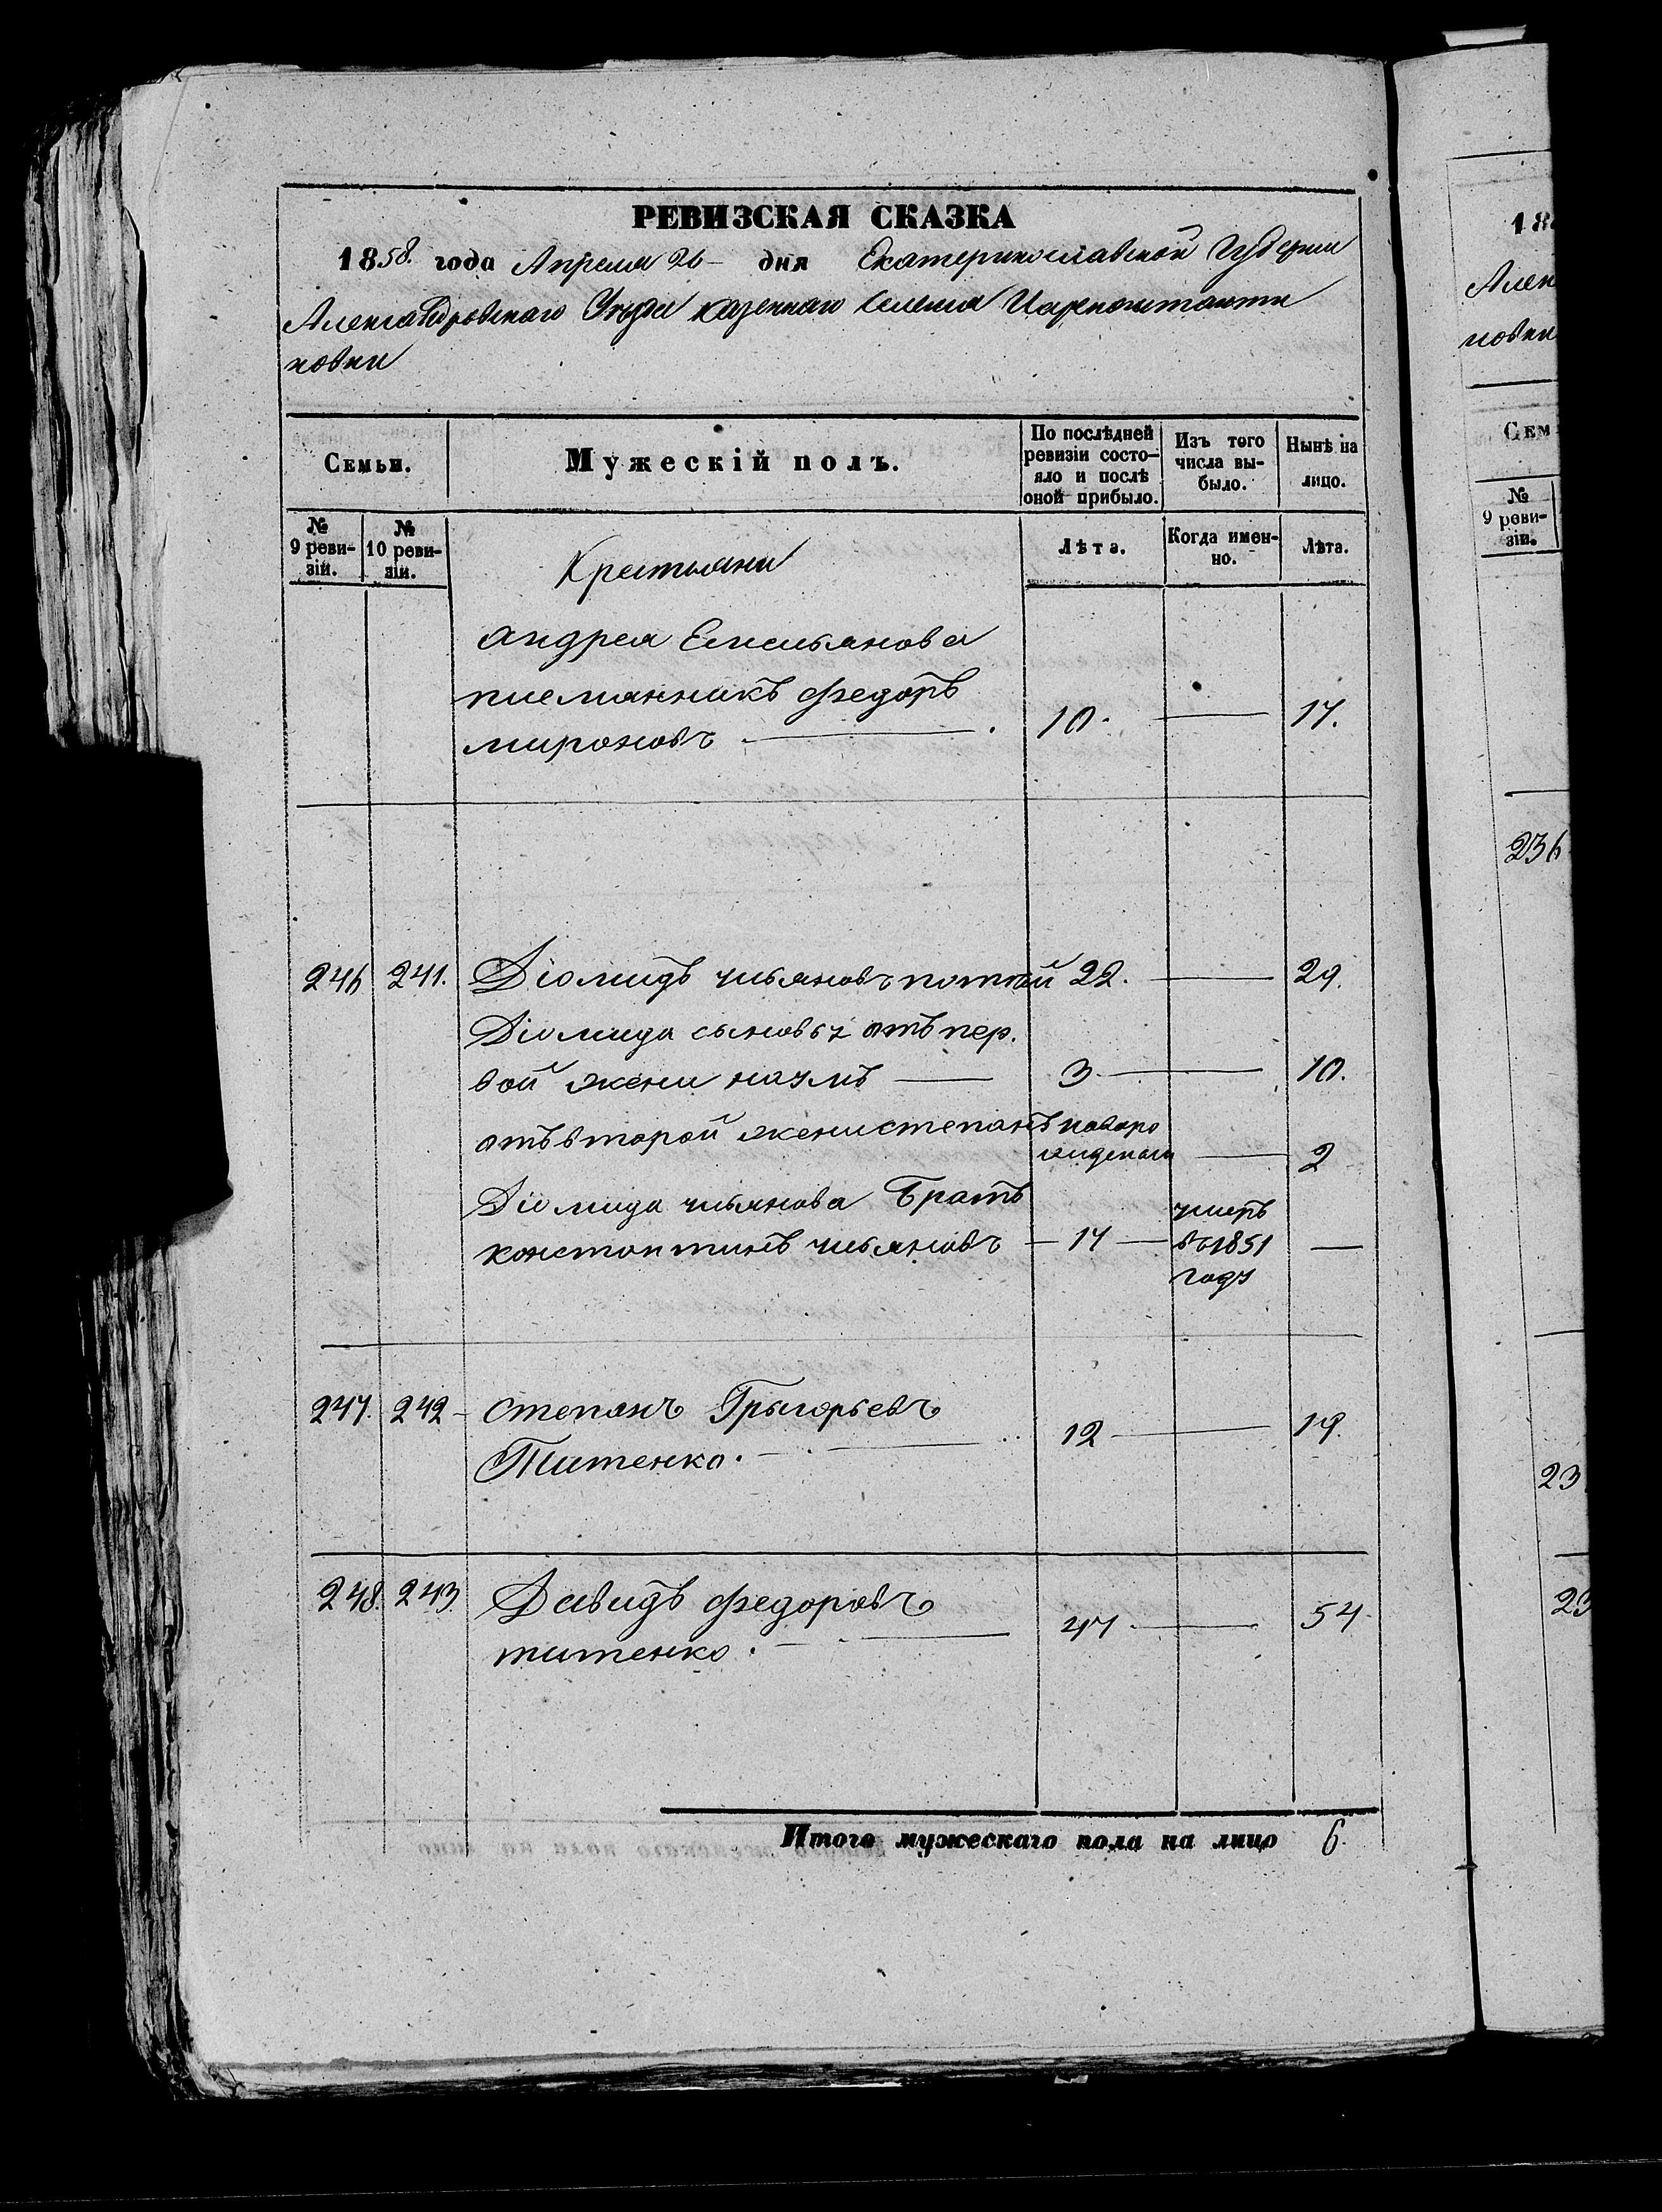 РЕВИЗСКАЯ СКАЗКА
1858. года Апреля 26 дня Екатеринославской Губернии
Александровского Уезда казеннаго Селения Царекостанти
новки
Семьи.
Мужескій полъ.
По послѣдней ревизіи состо-
яло и послѣ оной прибыло.
Изъ того числа вы-
было.
Нынѣ на лицо.
№ 9 реви-
зіи.
№ 10 реви-
зіи.
Крестьяни
Лѣта.
Когда имен-
но.
Лѣта.
Андрея Емельянова
племянникъ Федоръ
мироновъ 10. 17.
246 241. Діомидъ ульяновъ 22. 29.
Діомида сыновья отъ пер.
вой жени наумъ 3 10.
отъ второй жени степанъ новоро
жиденаи 2
Діомида ульянова Братъ
константинъ ульяновъ 17 умеръ
въ 1851
году
247. 242 степанъ Григорьевъ
Титенко. 12 19.
248. 243. Давидъ Федоровъ
титенко. 47 54
Итого мужескаго пола на лицо 6.
18
Алек
новки
Сем
№ 9 реви-
зіи.
236
23
23